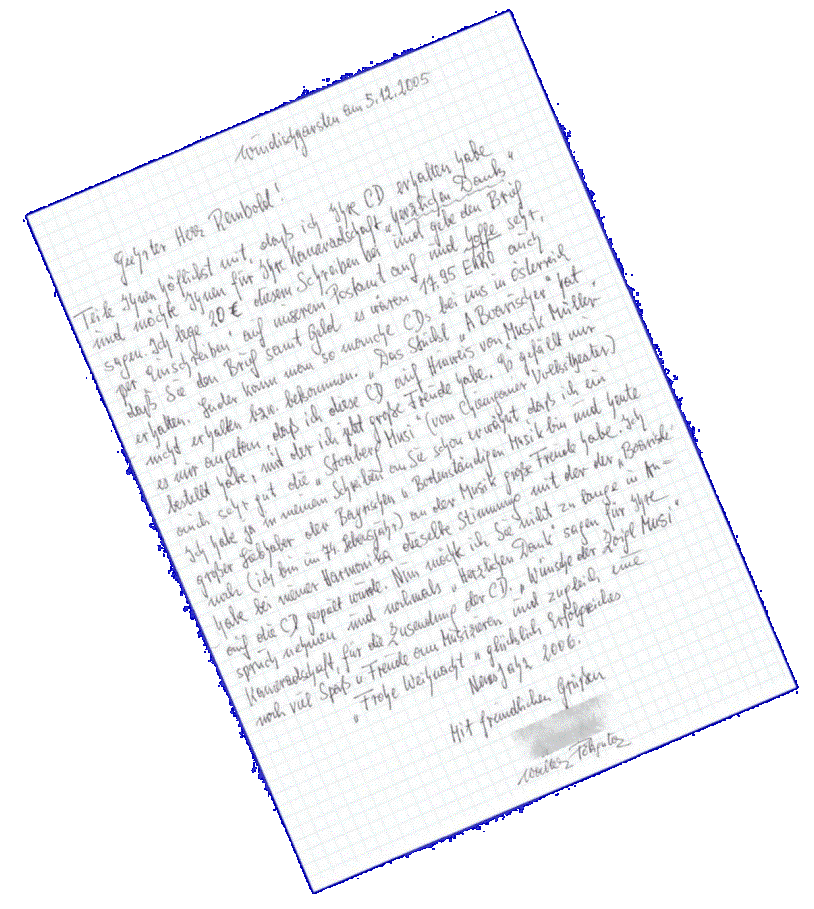 Windischgarsten am 5.12.2005
Geehrter Herr Rembold!
Teile Ihnen höflichst mit, daß ich Ihre CD erhalten habe
und möchte Ihnen für Ihre Kameradschaft „Herzlichen Dank"
sagen. Ich lege 20 € diesem Schreiben bei und gebe den Brief
per Einschreiben, auf unserem Postamt auf und hoffe sehr,
daß Sie den Brief samt Geld es wären 17.95 EURO auch
erhalten. Leider kann man so manche CDs bei uns in Österreich
nicht erhalten bzw. bekommen. „Das Stückl „A Boarischer" hat
es mir angetan daß ich diese CD auf Hinweis von Musik Müller
bestellt habe, mit der ich jetzt große Freude habe. Es gefällt mir
auch sehr gut die „ Musi" (vom Chiemgauer Volkstheater)
Ich habe ja in meinem Schreiben an Sie schon erwähnt daß ich ein
großer Liebhaber der Bayrischen „Bodenständigen Musik bin und heute
noch (ich bin im 74. Lebensjahr) an der Musik große Freude habe. Ich
habe bei meiner Harmonika dieselbe Stimmung mit der der „Boarische"
auf die CD gespielt wurde. Nun möchte ich Sie nicht zu lange in An-
spruch nehmen und nochmals „Herzlichen Dank" sagen für Ihre
Kameradschaft, für die Zusendung der CD. „Wünsche der Zoigl Musi"
noch viel Spaß „Freude am Musizieren und zugleich, eine
„Frohe Weihnacht" „glücklich Erfolgreiches
Neues Jahr 2006.
Mit freundlichen Grüßen